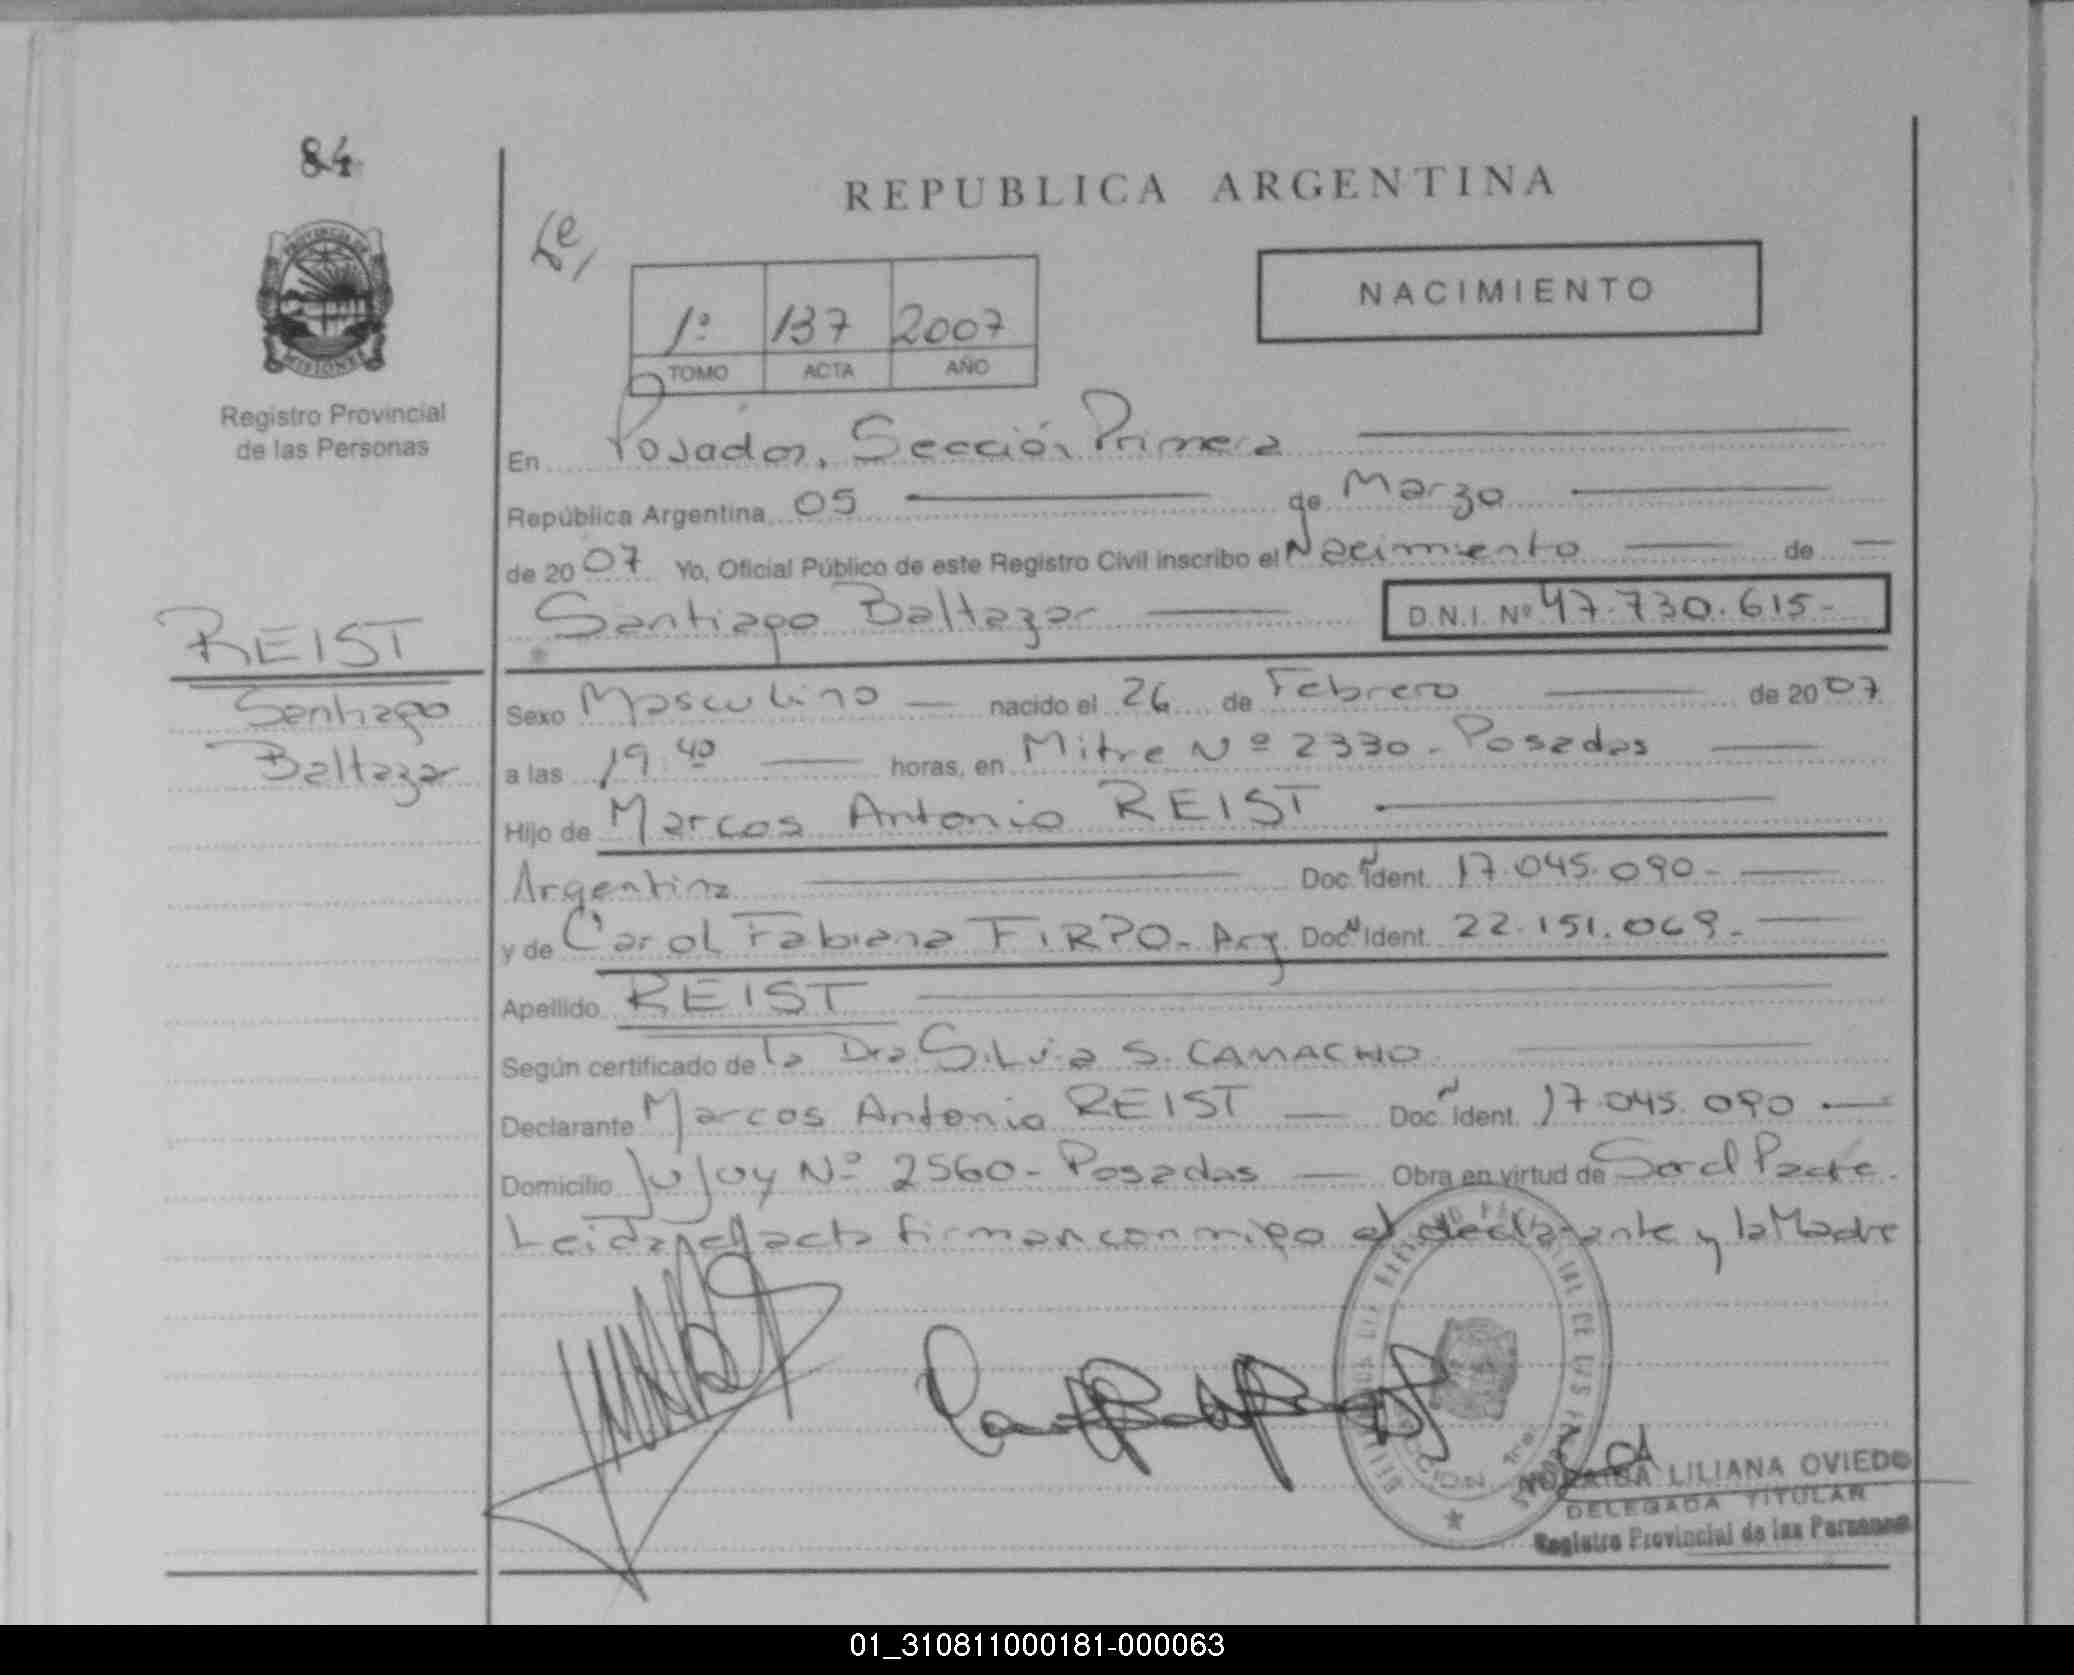 84
REPUBLICA ARGENTINA
PROVINCIA DE
MISIONES
NACIMIENTO
1º 137 2007
TOMO ACTA AÑO
Registro Provincial
de las Personas
En Posadas, Sección Primera
República Argentina, 05 de Marzo
de 2007 Yo, Oficial Público de este Registro Civil inscribo el Nacimiento de
Santiago Baltazar D.N.I. Nº 47.730.615-
REIST
Santiago
Baltazar
Sexo Masculino nacido el 26 de Febrero de 2007
a las 19:40 horas, en Mitre Nº 2330 - Posadas
Hijo de Marcos Antonio REIST
Argentina Doc. Ident. 17.045.090-
y de Carol Fabiana FIRPO - Arg. Doc. Ident. 22.151.069-
Apellido REIST
Según certificado de la Dra. Silvia S. CAMACHO
Declarante Marcos Antonio REIST Doc. Ident. 17.045.090
Domicilio Jujuy Nº 2560 - Posadas Obra en virtud de Ser el Padre.
Leida el acta firman conmigo el declarante y la Madre
LILIANA OVIEDO
DELEGADA TITULAR
Registro Provincial de las Personas
01_310811000181-000063